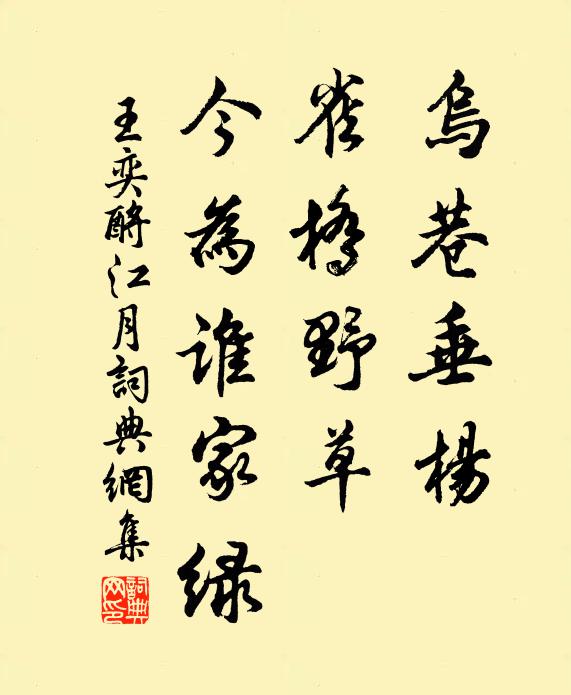 烏巷垂楊
雀橋野草
今為誰家綠
王奕酹江月詞典網集
詞典网印